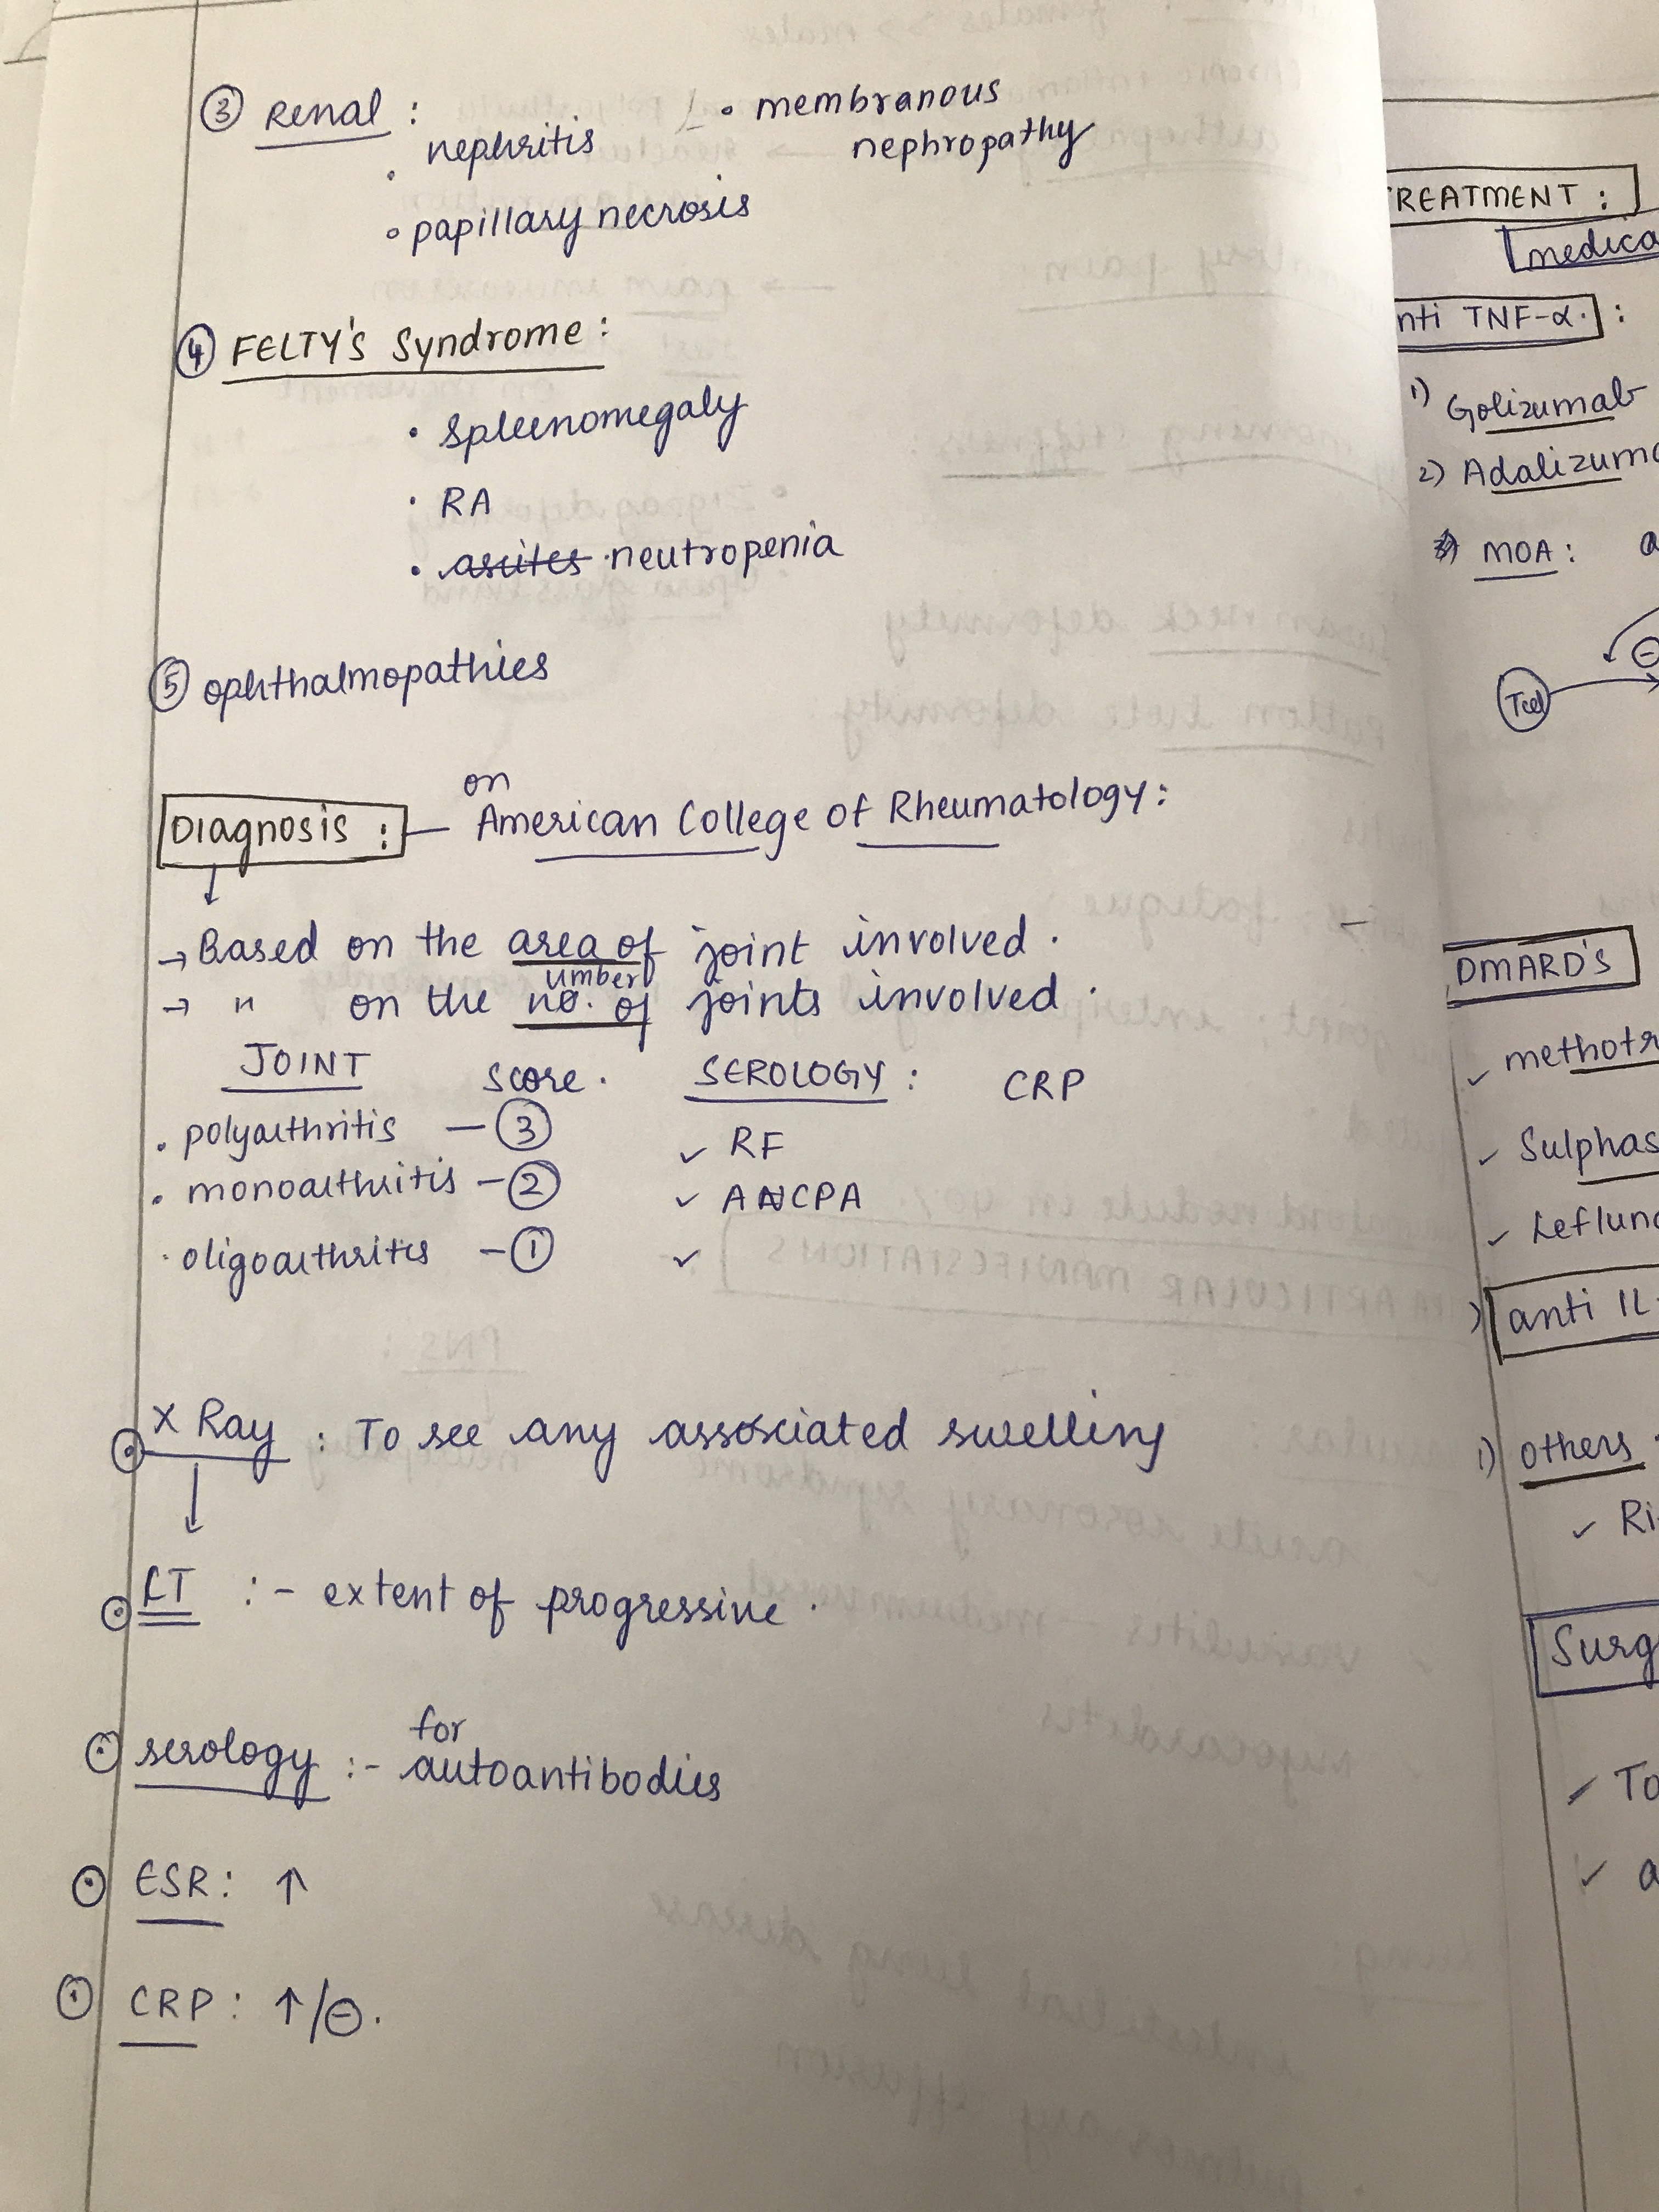 ③ Renal :
• nephritis
• membranous
nephropathy
• papillary necrosis
④ FELTY's Syndrome :
• Spleenomegaly
• RA
• ascites neutropenia
⑤ ophthalmopathies
Diagnosis : — on American College of Rheumatology :
↓
→ Based on the area of joint involved .
→ " on the no. of joints involved .
umber
JOINT score . SEROLOGY : CRP
• polyarthritis — ③ ✓ RF
• monoarthritis — ② ✓ ANCPA
• oligoarthritis — ① ✓
⊙ X Ray : To see any associated swelling
↓
⊙ CT :- extent of progressive .
⊙ serology :- for autoantibodies
⊙ ESR : ↑
⊙ CRP : ↑/⊖ .
TREATMENT :
medica
anti TNF-α. :
1) Golizumab
2) Adalizuma
MOA : a
Tcell → ⊖
DMARD's
✓ methotr
✓ Sulphas
✓ Lefluno
) anti IL-
1) others
✓ Ri
Surg
✓ To
✓ a